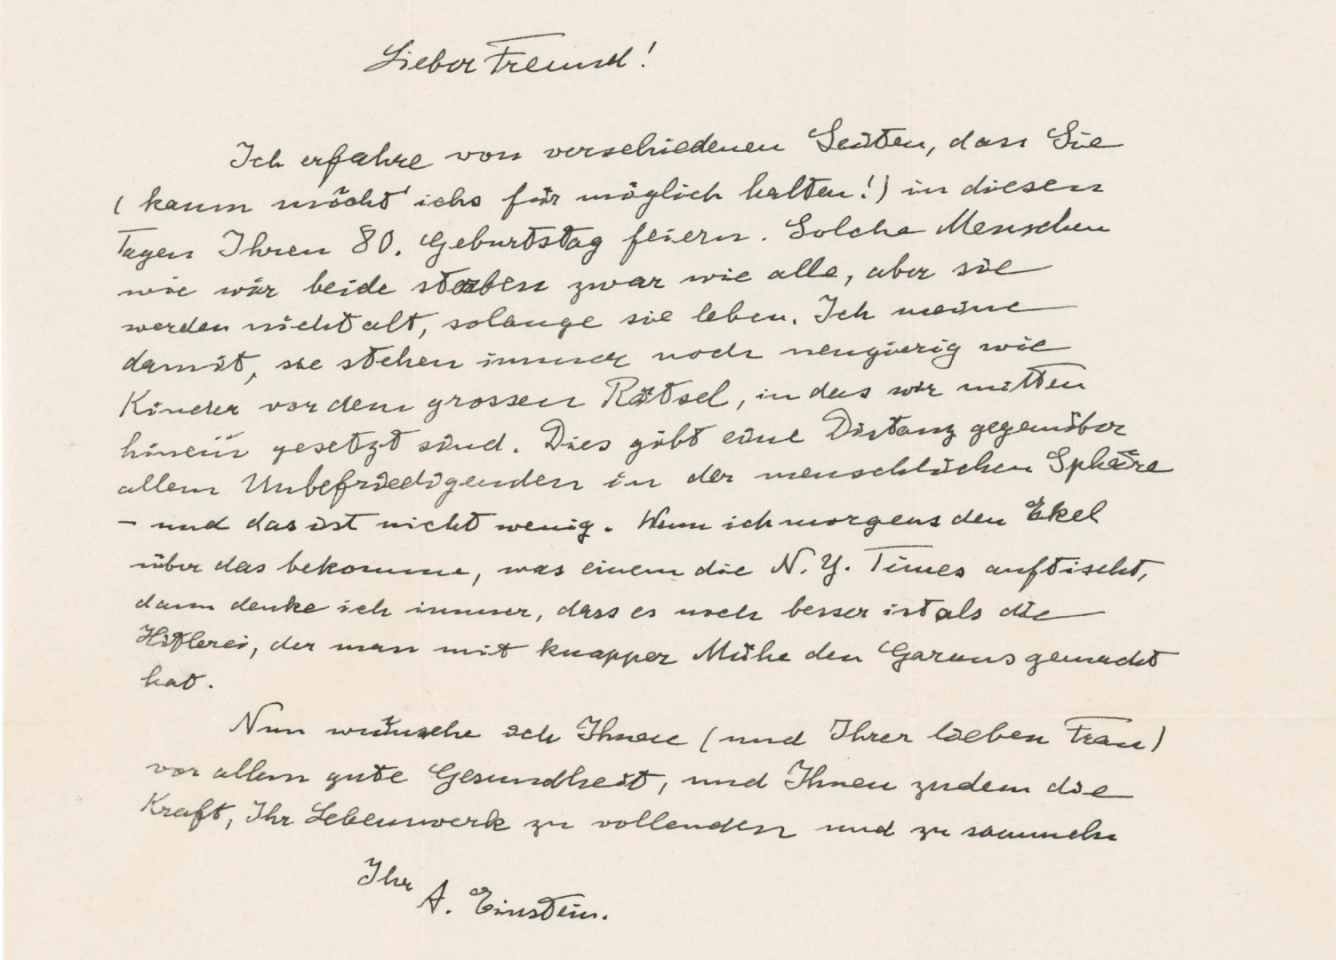 Lieber Freund!
Ich erfahre von verschiedenen Seiten, dass Sie
(kaum möcht' ichs für möglich halten!) in diesen
Tagen Ihren 80. Geburtstag feiern. Solche Menschen
wie wir beide sterben zwar wie alle, aber sie
werden nicht alt, solange sie leben. Ich meine
damit, sie stehen immer noch neugierig wie
Kinder vor dem grossen Rätsel, in das wir mitten
hinein gesetzt sind. Dies gibt eine Distanz gegenüber
allem Unbefriedigenden in der menschlichen Sphäre
– und das ist nicht wenig. Wenn ich morgens den Ekel
über das bekomme, was einem die N.Y. Times auftischt,
dann denke ich immer, dass es noch besser ist als die
Hitlerei, der man mit knapper Mühe den Garaus gemacht
hat.
Nun wünsche ich Ihnen (und Ihrer lieben Frau)
vor allem gute Gesundheit, und Ihnen zudem die
Kraft, Ihr Lebenswerk zu vollenden und zu sammeln
Ihr
A. Einstein.